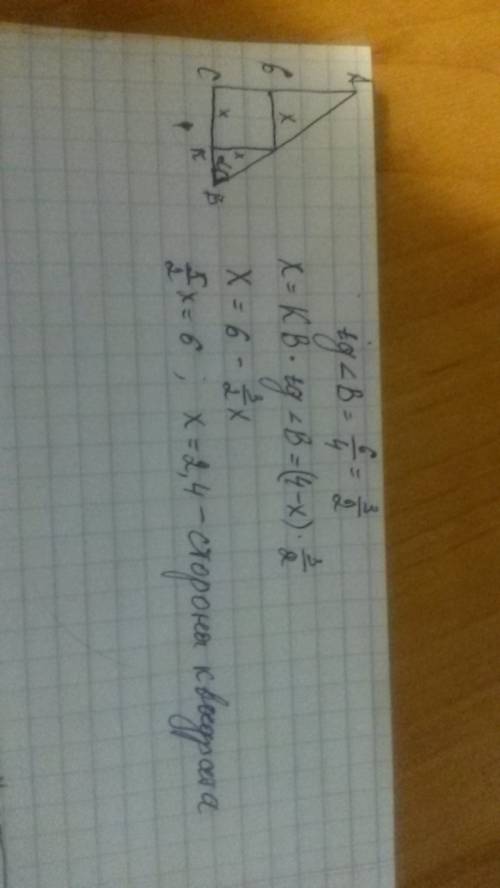 A
6
C
x
x
x
K
B
tg∠B = 6/4 = 3/2
x = KB · tg∠B = (4-x) · 3/2
x = 6 - 3/2 x
5/2 x = 6 ; x = 2,4 - сторона квадрата